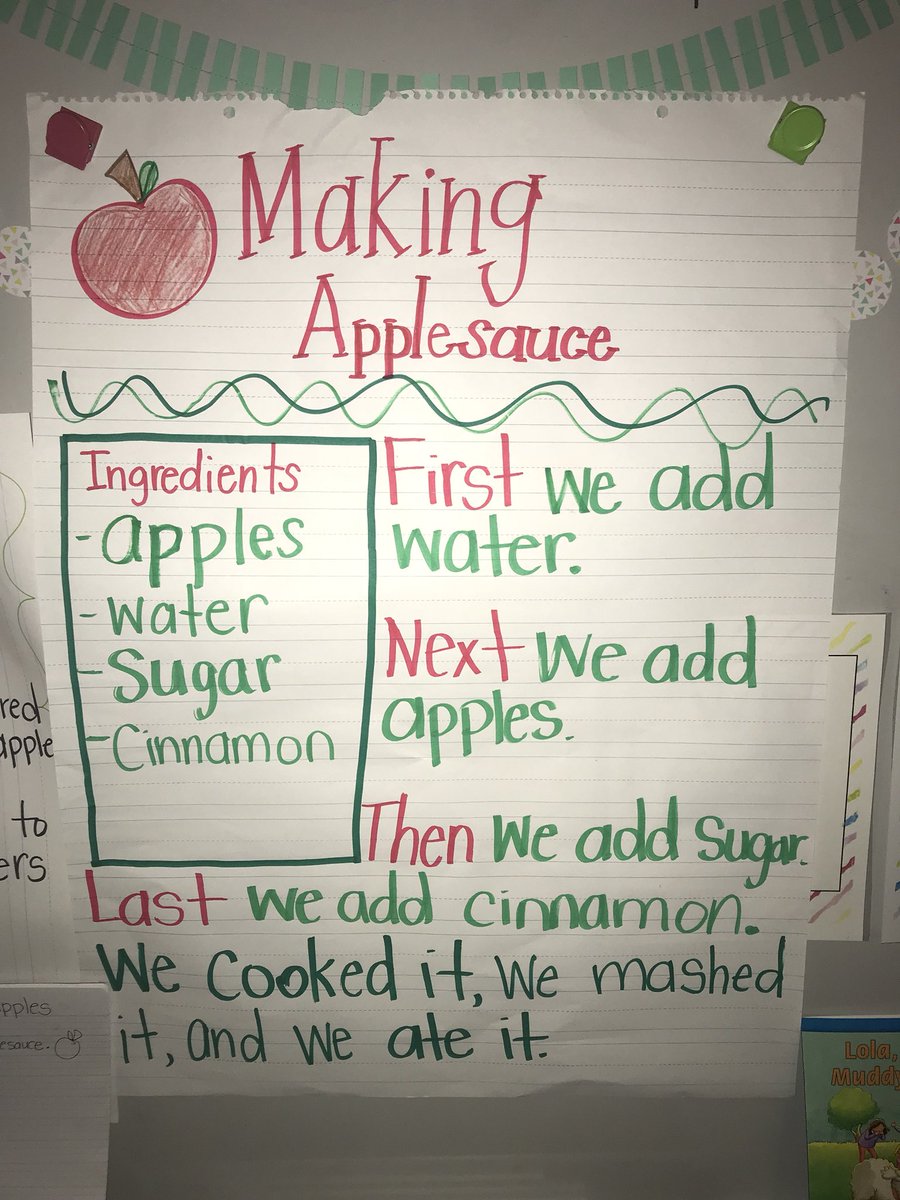 Making
Applesauce
Ingredients
- apples
- water
- Sugar
- Cinnamon
First we add
water.
Next we add
apples.
Then we add Sugar.
Last we add cinnamon.
We Cooked it, we mashed
it, and we ate it.
red
apple
to
ers
pples
esauce.
Lola,
Muddy